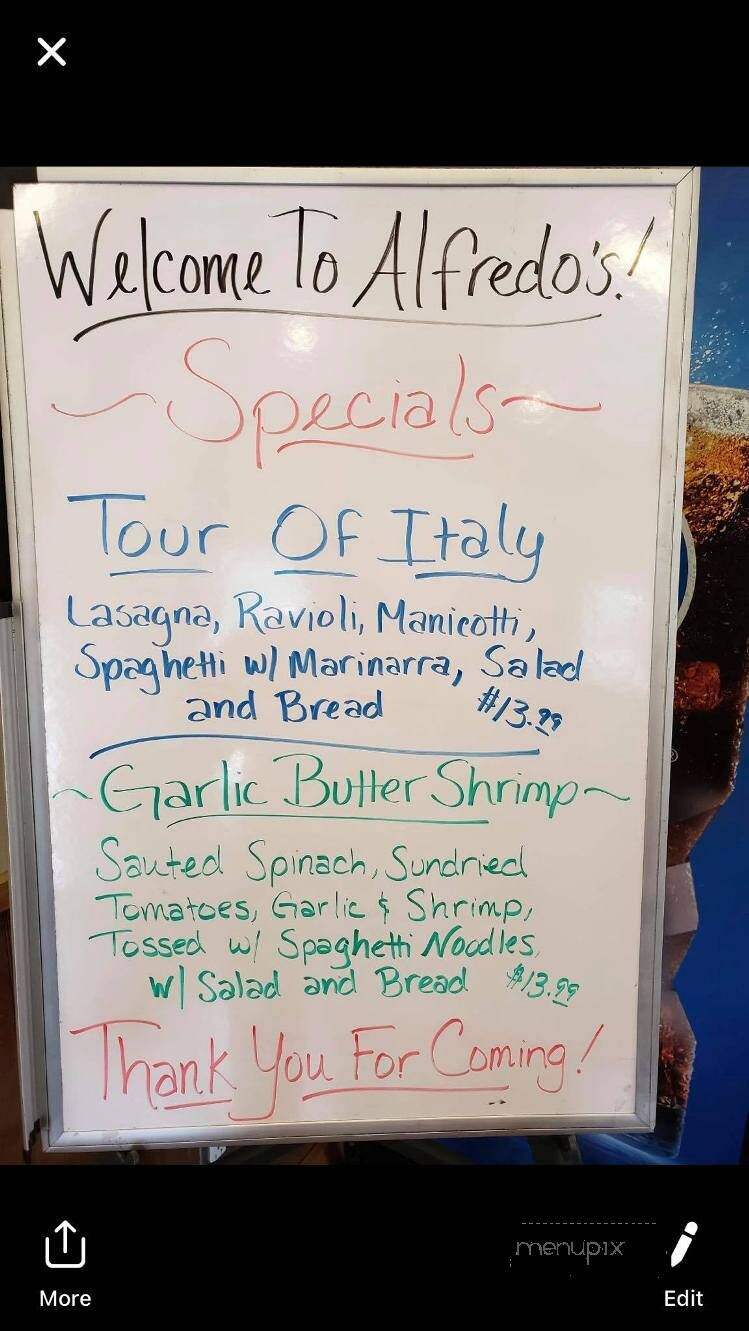 Welcome To Alfredo's!
~Specials~
Tour Of Italy
Lasagna, Ravioli, Manicotti,
Spaghetti w/ Marinarra, Salad
and Bread $13.99
~Garlic Butter Shrimp~
Sauted Spinach, Sundried
Tomatoes, Garlic & Shrimp,
Tossed w/ Spaghetti Noodles,
w/ Salad and Bread $13.99
Thank You For Coming!
menupix
More Edit